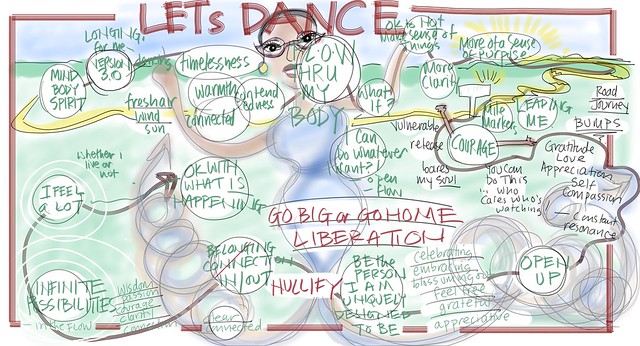 LETS DANCE
LONGING
for the
VERSION
3.0
dancing
MIND
BODY
SPIRIT
timelessness
warmth
connected
fresh air
wind
sun
LOW
HRU
MY
BODY
OK is Not
Make sense of
things
More of a Sense
of PURPOSE
More
Clarity
What
if?
Mile
Markers
LEADING
ME
Road
Journey
BUMPS
Vulnerable
release
bares
my soul
COURAGE
You Can
Do This
... who
Cares who's
watching
Gratitude
Love
Appreciation
Self
Compassion
Constant
resonance
Can
Do Whatever
I want?
open
Flow
whether I
live or not
I FEEL
A LOT
OK WITH
WHAT IS
HAPPENING
GO BIG or GO HOME
LIBERATION
BELONGING
CONNECTION
IN/OUT
HULLIFY
BE the
PERSON
I AM
UNIQUELY
DESIGNED
TO BE
celebrating
embracing
blissuming out
feel free
grateful
appreciative
OPEN
UP
INFINITE
POSSIBILITIES
in the FLOW
wisdom
passion
courage
clarity
connection
connected